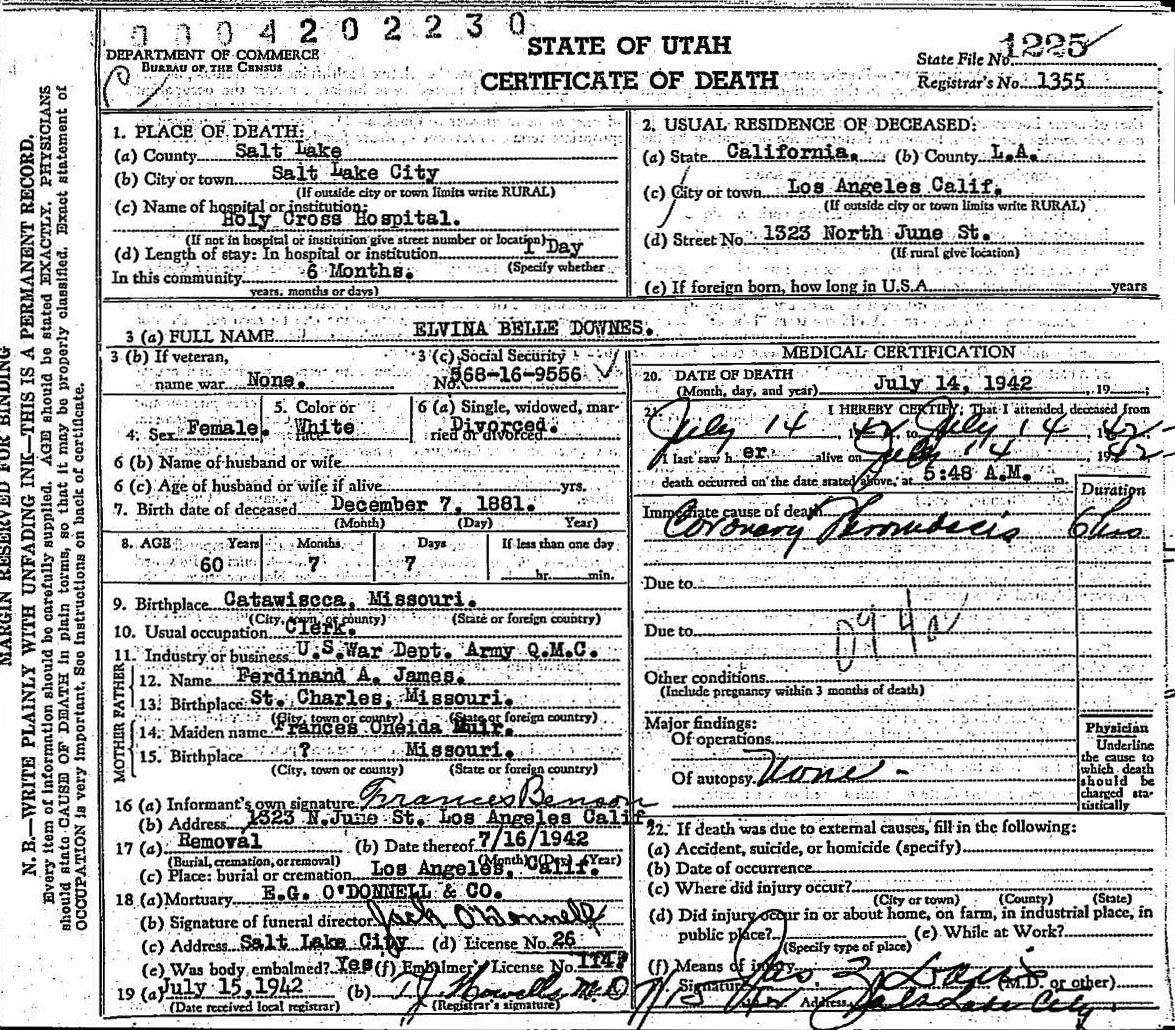 0004202230
DEPARTMENT OF COMMERCE
BUREAU OF THE CENSUS
STATE OF UTAH
CERTIFICATE OF DEATH
State File No. 1225
Registrar's No. 1355
MARGIN RESERVED FOR BINDING
N. B.—WRITE PLAINLY WITH UNFADING INK—THIS IS A PERMANENT RECORD.
Every item of information should be carefully supplied. AGE should be stated EXACTLY. PHYSICIANS
should state CAUSE OF DEATH in plain terms, so that it may be properly classified. Exact statement of
OCCUPATION is very important. See instructions on back of certificate.
1. PLACE OF DEATH:
(a) County Salt Lake
(b) City or town Salt Lake City
(If outside city or town limits write RURAL)
(c) Name of hospital or institution:
Holy Cross Hospital.
(If not in hospital or institution give street number or location)
(d) Length of stay: In hospital or institution 1 Day
(Specify whether
In this community 6 Months.
years, months or days)
2. USUAL RESIDENCE OF DECEASED:
(a) State California. (b) County L.A.
(c) City or town Los Angeles Calif.
(If outside city or town limits write RURAL)
(d) Street No. 1323 North June St.
(If rural give location)
(e) If foreign born, how long in U.S.A. years
3 (a) FULL NAME ELVINA BELLE DOWNES.
3 (b) If veteran, name war None.
3 (c) Social Security No. 568-16-9556
4. Sex Female.
5. Color or race White
6 (a) Single, widowed, married or divorced Divorced.
6 (b) Name of husband or wife
6 (c) Age of husband or wife if alive yrs.
7. Birth date of deceased December 7, 1881.
(Month) (Day) Year)
8. AGE Years Months Days If less than one day
60 7 7 hr. min.
9. Birthplace Catawissca, Missouri.
(City, town, or county) (State or foreign country)
10. Usual occupation Clerk.
11. Industry or business U.S.War Dept. Army Q.M.C.
FATHER
12. Name Ferdinand A. James.
13. Birthplace St. Charles, Missouri.
(City, town or county) (State or foreign country)
MOTHER
14. Maiden name Frances Oneida Muir.
15. Birthplace ? Missouri.
(City, town or county) (State or foreign country)
16 (a) Informant's own signature Frances Benson
(b) Address 1323 N.June St. Los Angeles Calif.
17 (a) Removal (b) Date thereof 7/16/1942
(Burial, cremation, or removal) (Month) (Day) (Year)
(c) Place: burial or cremation Los Angeles, Calif.
18 (a) Mortuary E.G. O'DONNELL & CO.
(b) Signature of funeral director Jack O'Donnell
(c) Address Salt Lake City (d) License No. 26
(e) Was body embalmed? Yes (f) Embalmer's License No.
19 (a) July 15,1942 (b) Howells M.D
(Date received local registrar) (Registrar's signature)
MEDICAL CERTIFICATION
20. DATE OF DEATH
(Month, day, and year) July 14, 1942 , 19 ;
21. I HEREBY CERTIFY, That I attended deceased from
July 14 , 1942, to July 14 , 1942
I last saw her alive on July 14 , 1942
death occurred on the date stated above, at 5:48 A.M. m.
Immediate cause of death Duration
Coronary Thrombosis 6 hrs
Due to
Due to
094a
Other conditions
(Include pregnancy within 3 months of death)
Major findings:
Of operations
Of autopsy None -
Physician
Underline
the cause to
which death
should be
charged sta-
tistically
22. If death was due to external causes, fill in the following:
(a) Accident, suicide, or homicide (specify)
(b) Date of occurrence
(c) Where did injury occur?
(City or town) (County) (State)
(d) Did injury occur in or about home, on farm, in industrial place, in
public place? (e) While at Work?
(Specify type of place)
(f) Means of injury
Signature (M.D. or other)
Address Salt Lake City